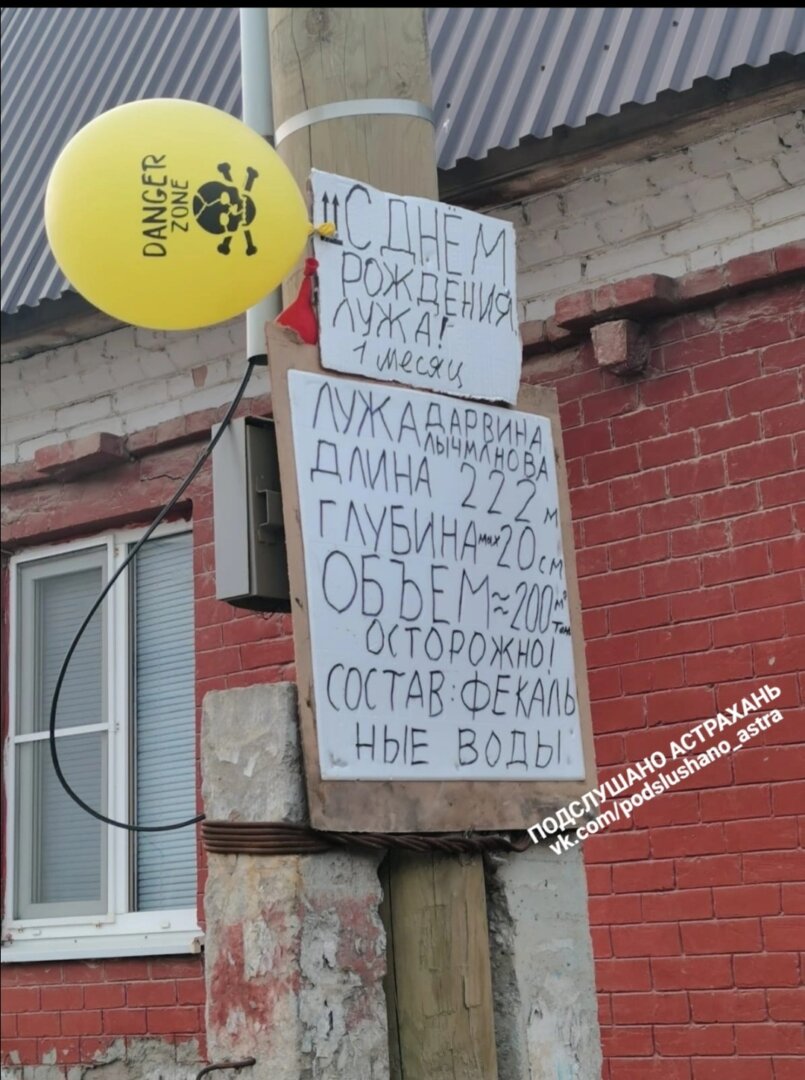 DANGER
ZONE
С ДНЁМ
РОЖДЕНИЯ
ЛУЖА!
1 месяц
ЛУЖА ДАРВИНА
ЛЫЧМАНОВА
ДЛИНА 222 м
ГЛУБИНА мах 20 см
ОБЪЕМ ≈ 200 м³
ОСТОРОЖНО!
СОСТАВ: ФЕКАЛЬ
НЫЕ ВОДЫ
ПОДСЛУШАНО АСТРАХАНЬ
vk.com/podslushano_astra